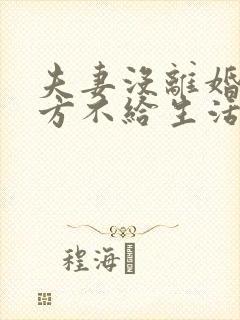 夫妻沒離婚
方不給生活
程海